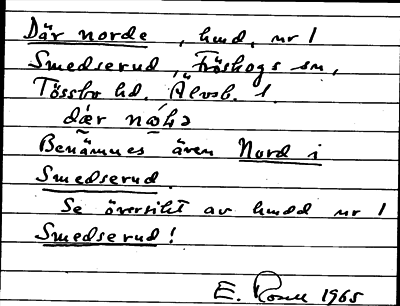 Där norde, hmd. nr 1
Smedserud, Fröskogs sn,
Tössbo hd. Älvsb. l.
Benämnes även Nord i
Smedserud.
Se översikt av hmdd nr 1
Smedserud!
E. Rosell 1965